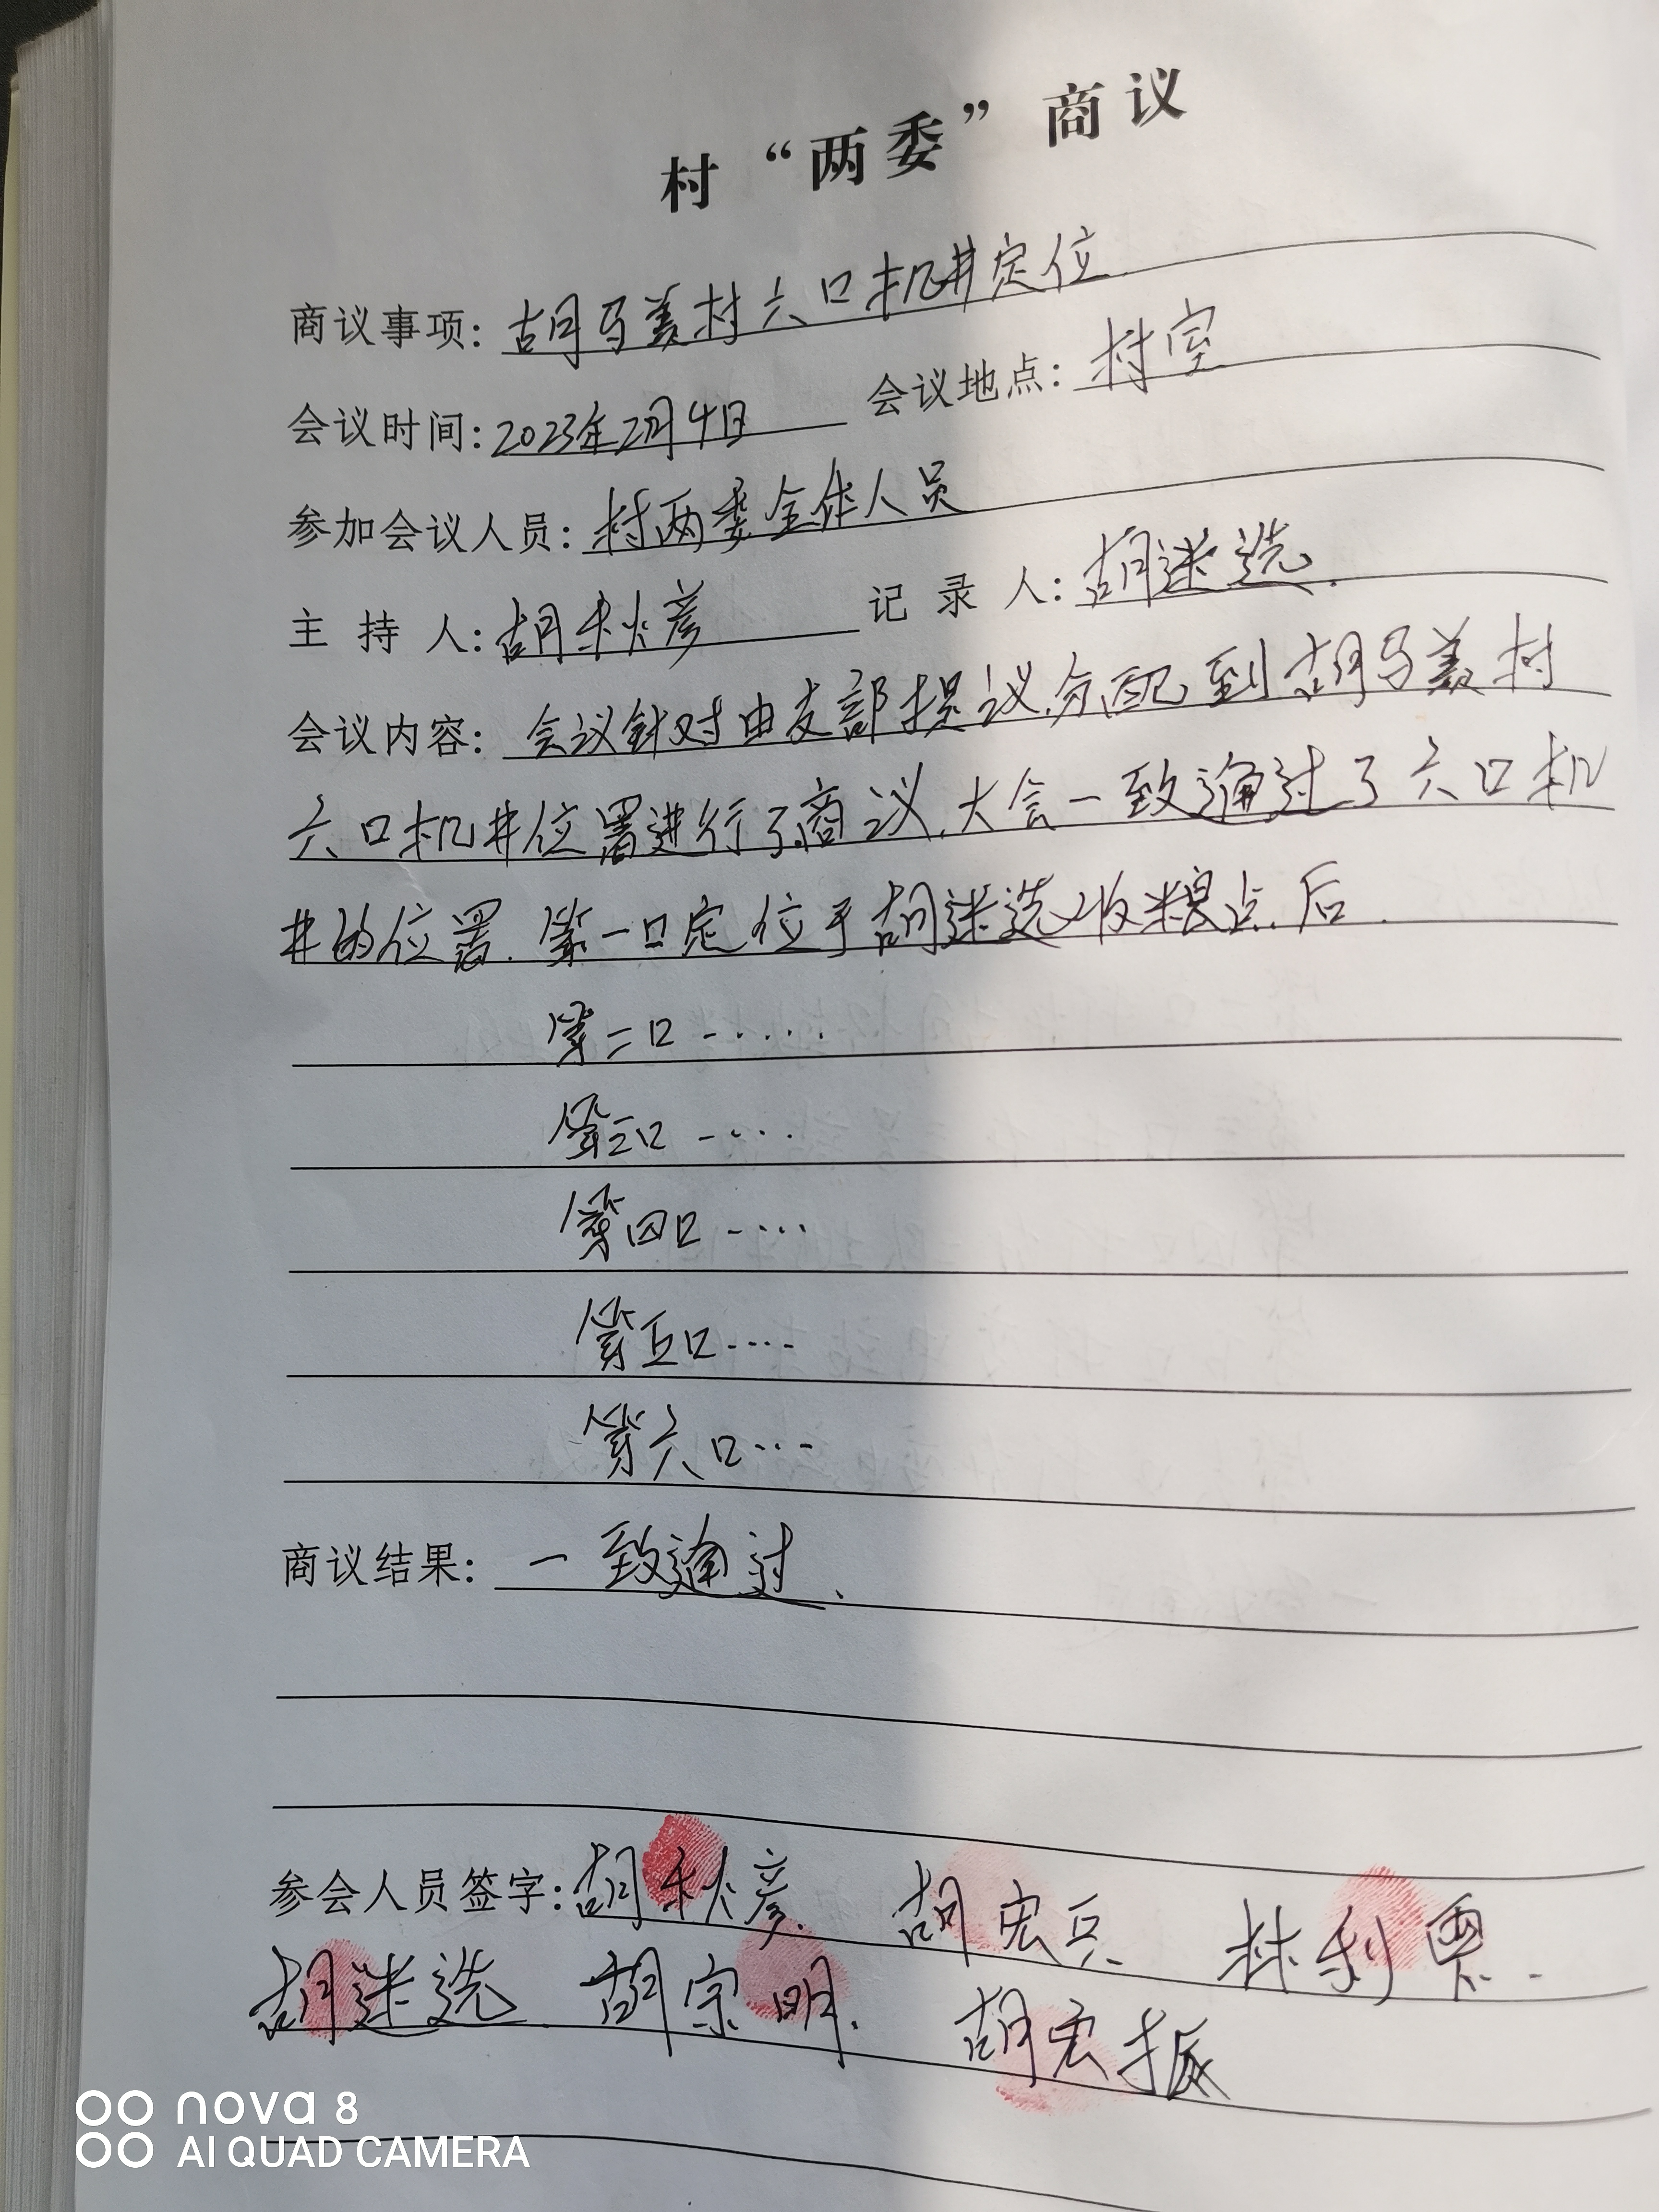 村“两委”商议
商议事项：胡马姜村六口机井定位
会议时间：2023年2月4日 会议地点：村室
参加会议人员：村两委全体人员
主持人：胡秋彦 记录人：胡迷选.
会议内容：会议针对由支部提议.分配到胡马姜村
六口机井位置进行了商议.大会一致通过了六口机
井的位置.第一口定位于胡迷选收粮点后.
第二口-·····
第三口-····
第四口-····
第五口····
第六口···
商议结果：一致通过.
参会人员签字：胡秋彦 胡宏兵 林利
胡迷选 胡宗明. 胡宏振
nova 8
AI QUAD CAMERA